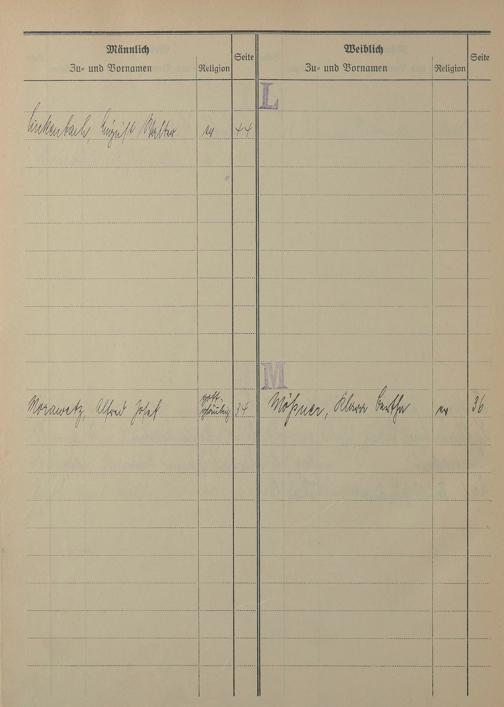 Männlich Weiblich
Zu- und Vornamen Religion Seite Zu- und Vornamen Religion Seite
L
Linkenbach, August Walter ev 44
M
Morawetz, Alfred Josef gott-
gläubig 34 Mößner, Klara Bertha ev 36